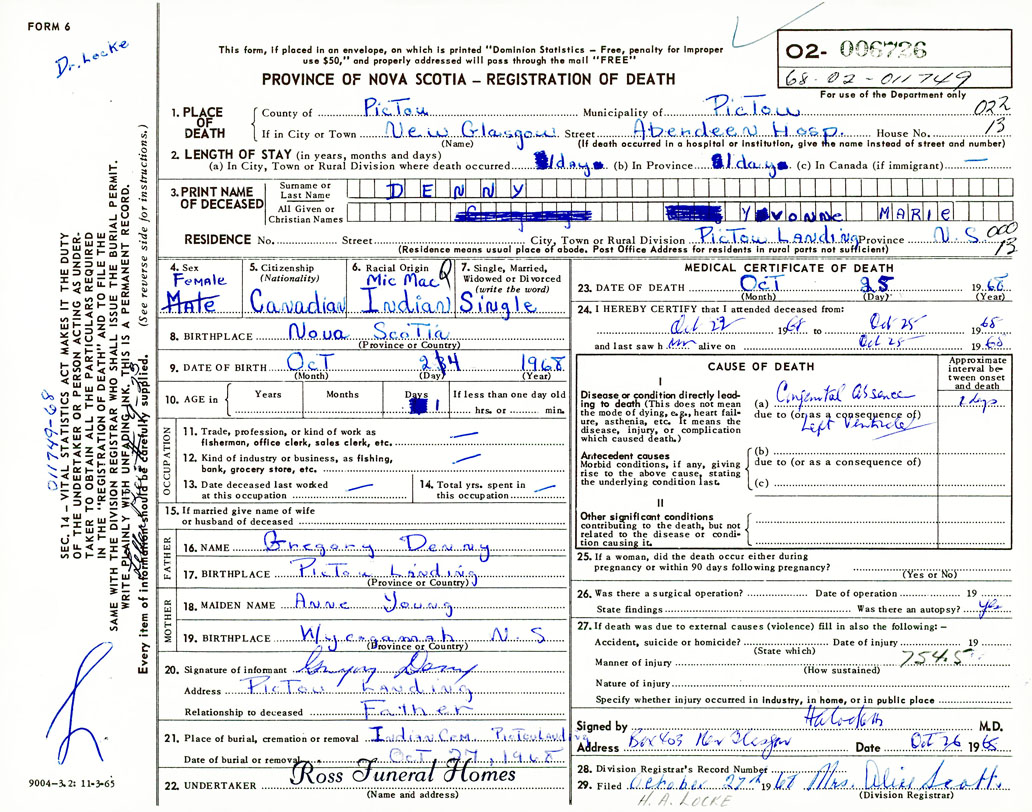 FORM 6
Dr. Locke
This form, if placed in an envelope, on which is printed "Dominion Statistics – Free, penalty for improper
use $50," and properly addressed will pass through the mail "FREE"
PROVINCE OF NOVA SCOTIA – REGISTRATION OF DEATH
O2- 006726
68-02-011749
For use of the Department only
022
13
1. PLACE OF DEATH
County of PicTou Municipality of PicTou
If in City or Town New Glasgow Street Aberdeen Hosp. House No.
(Name) (If death occurred in a hospital or institution, give the name instead of street and number)
2. LENGTH OF STAY (in years, months and days)
(a) In City, Town or Rural Division where death occurred 1 days (b) In Province 1 days (c) In Canada (if immigrant) —
3. PRINT NAME OF DECEASED
Surname or Last Name DENNY
All Given or Christian Names YVONNE MARIE
RESIDENCE No. Street City, Town or Rural Division PicTou Landing Province N.S.
(Residence means usual place of abode. Post Office Address for residents in rural parts not sufficient)
000
13
4. Sex
Female
Male
5. Citizenship
(Nationality)
Canadian
6. Racial Origin
Mic Mac
Indian
7. Single, Married,
Widowed or Divorced
(write the word)
Single
8. BIRTHPLACE Nova ScoTia
(Province or Country)
9. DATE OF BIRTH OcT 24 1968
(Month) (Day) (Year)
10. AGE in
Years Months Days If less than one day old
1 hrs. or min.
OCCUPATION
11. Trade, profession, or kind of work as
fisherman, office clerk, sales clerk, etc. —
12. Kind of industry or business, as fishing,
bank, grocery store, etc. —
13. Date deceased last worked
at this occupation —
14. Total yrs. spent in
this occupation —
15. If married give name of wife
or husband of deceased
FATHER
16. NAME Gregory Denny
17. BIRTHPLACE PicTou Landing
(Province or Country)
MOTHER
18. MAIDEN NAME Anne Young
19. BIRTHPLACE Wycogamah N.S
(Province or Country)
20. Signature of informant Gregory Denny
Address PicTou Landing
Relationship to deceased Father
21. Place of burial, cremation or removal Indian Cem. PicTou Landing
Date of burial or removal Oct 27, 1968
22. UNDERTAKER Ross Funeral Homes
(Name and address)
MEDICAL CERTIFICATE OF DEATH
23. DATE OF DEATH OcT 25 1968
(Month) (Day) (Year)
24. I HEREBY CERTIFY that I attended deceased from:
Oct 1968 to Oct 25 1968
and last saw h alive on Oct 25 1968
CAUSE OF DEATH
Approximate
interval be-
tween onset
and death
I
Disease or condition directly lead-
ing to death (This does not mean
the mode of dying, e.g., heart fail-
ure, asthenia, etc. It means the
disease, injury, or complication
which caused death.)
(a) Congenital Absence
due to (or as a consequence of)
Left Ventricle
days
Antecedent causes
Morbid conditions, if any, giving
rise to the above cause, stating
the underlying condition last.
(b)
due to (or as a consequence of)
(c)
II
Other significant conditions
contributing to the death, but not
related to the disease or condi-
tion causing it.
25. If a woman, did the death occur either during
pregnancy or within 90 days following pregnancy?
(Yes or No)
26. Was there a surgical operation? Date of operation 19
State findings Was there an autopsy? yes
27. If death was due to external causes (violence) fill in also the following: –
Accident, suicide or homicide? Date of injury 19
(State which)
Manner of injury 754.5
(How sustained)
Nature of injury
Specify whether injury occurred in industry, in home, or in public place
Signed by M.D.
Address Box 403 New Glasgow Date Oct 26 1968
28. Division Registrar's Record Number
29. Filed October 27th 1968 Mrs. Olive Scott.
(Division Registrar)
H. A. LOCKE
SEC. 14 – VITAL STATISTICS ACT MAKES IT THE DUTY
OF THE UNDERTAKER OR PERSON ACTING AS UNDER-
TAKER TO OBTAIN ALL THE PARTICULARS REQUIRED
IN THE "REGISTRATION OF DEATH" AND TO FILE THE
SAME WITH THE DIVISION REGISTRAR WHO SHALL ISSUE THE BURIAL PERMIT.
WRITE PLAINLY WITH UNFADING INK. THIS IS A PERMANENT RECORD.
Every item of information should be carefully supplied. (See reverse side for instructions.)
011749-68
9004-3.2: 11-3-65